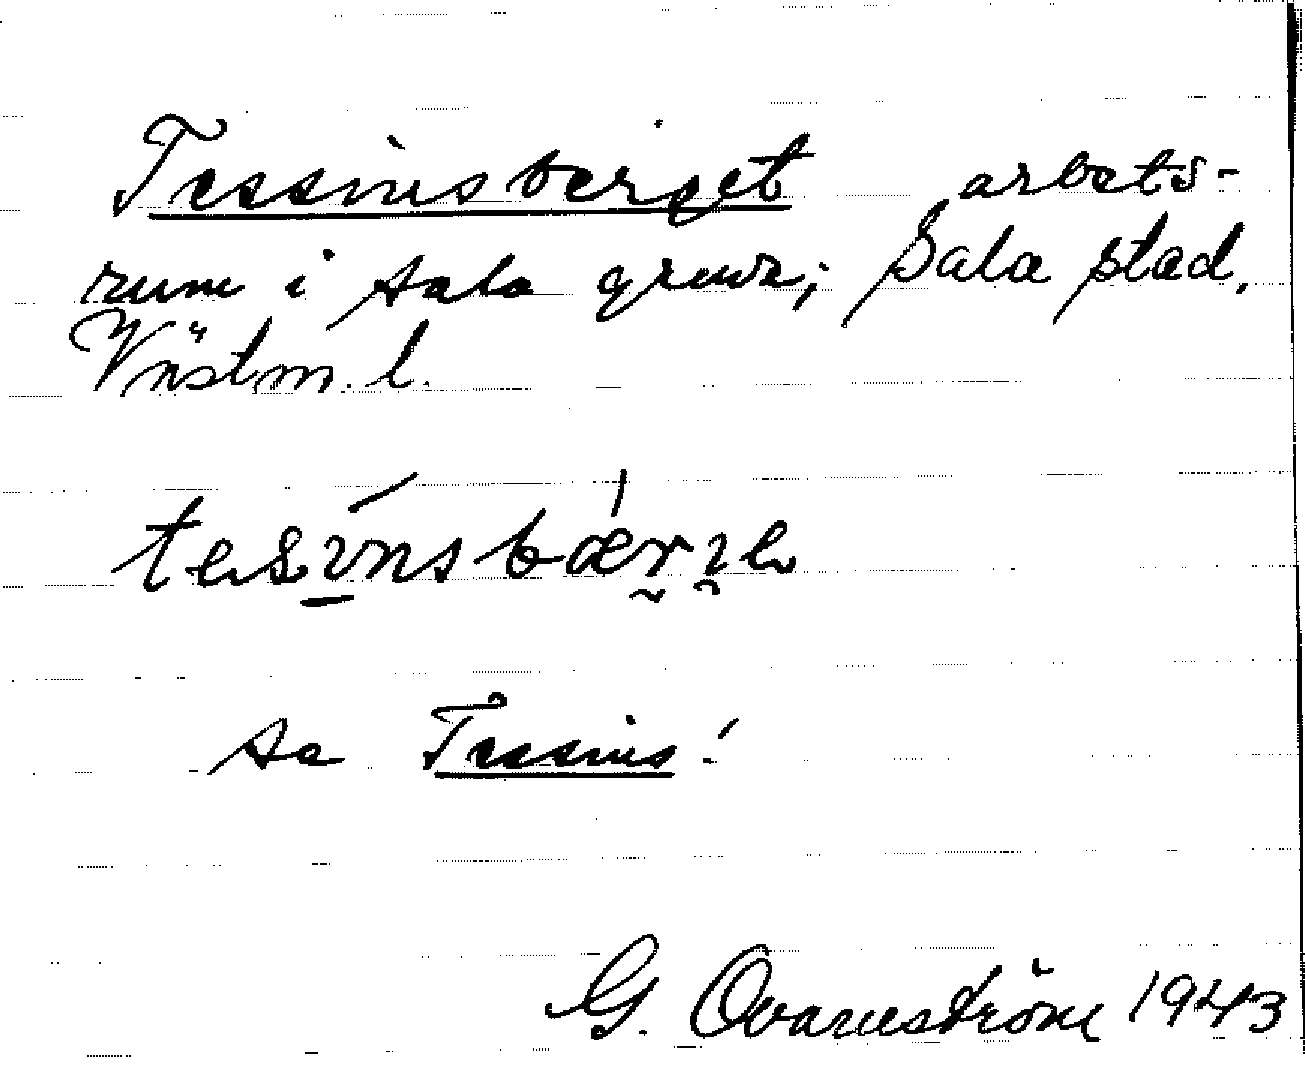 Tessinsberget arbets-
rum i Sala gruva; Sala stad,
Västm. l.
tesí̱nsbǽrɡe
Se Tessins!
G. Qvarnström 1943